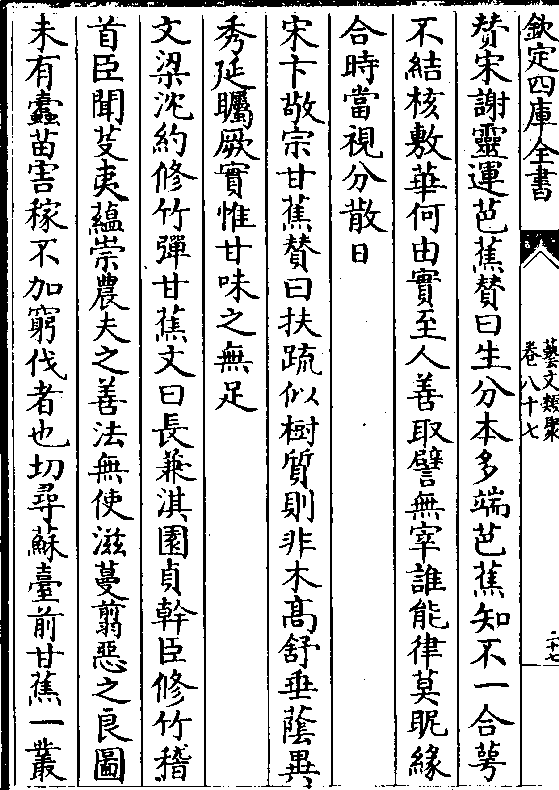 欽定四庫全書
藝文類聚
卷八十七
二十七
贊宋謝靈運芭蕉贊曰生分本多端芭蕉知不一合萼
不結核敷華何由實至人善取譬無宰誰能律莫昵緣
合時當視分散日
宋卞敬宗甘蕉贊曰扶疏似樹質則非木高舒垂蔭異
秀延矚厥實惟甘味之無足
文梁沈約修竹彈甘蕉文曰長兼淇園貞幹臣修竹稽
首臣聞芟夷蘊崇農夫之善法無使滋蔓翦惡之良圖
未有蠹苗害稼不加窮伐者也切尋蘇臺前甘蕉一叢